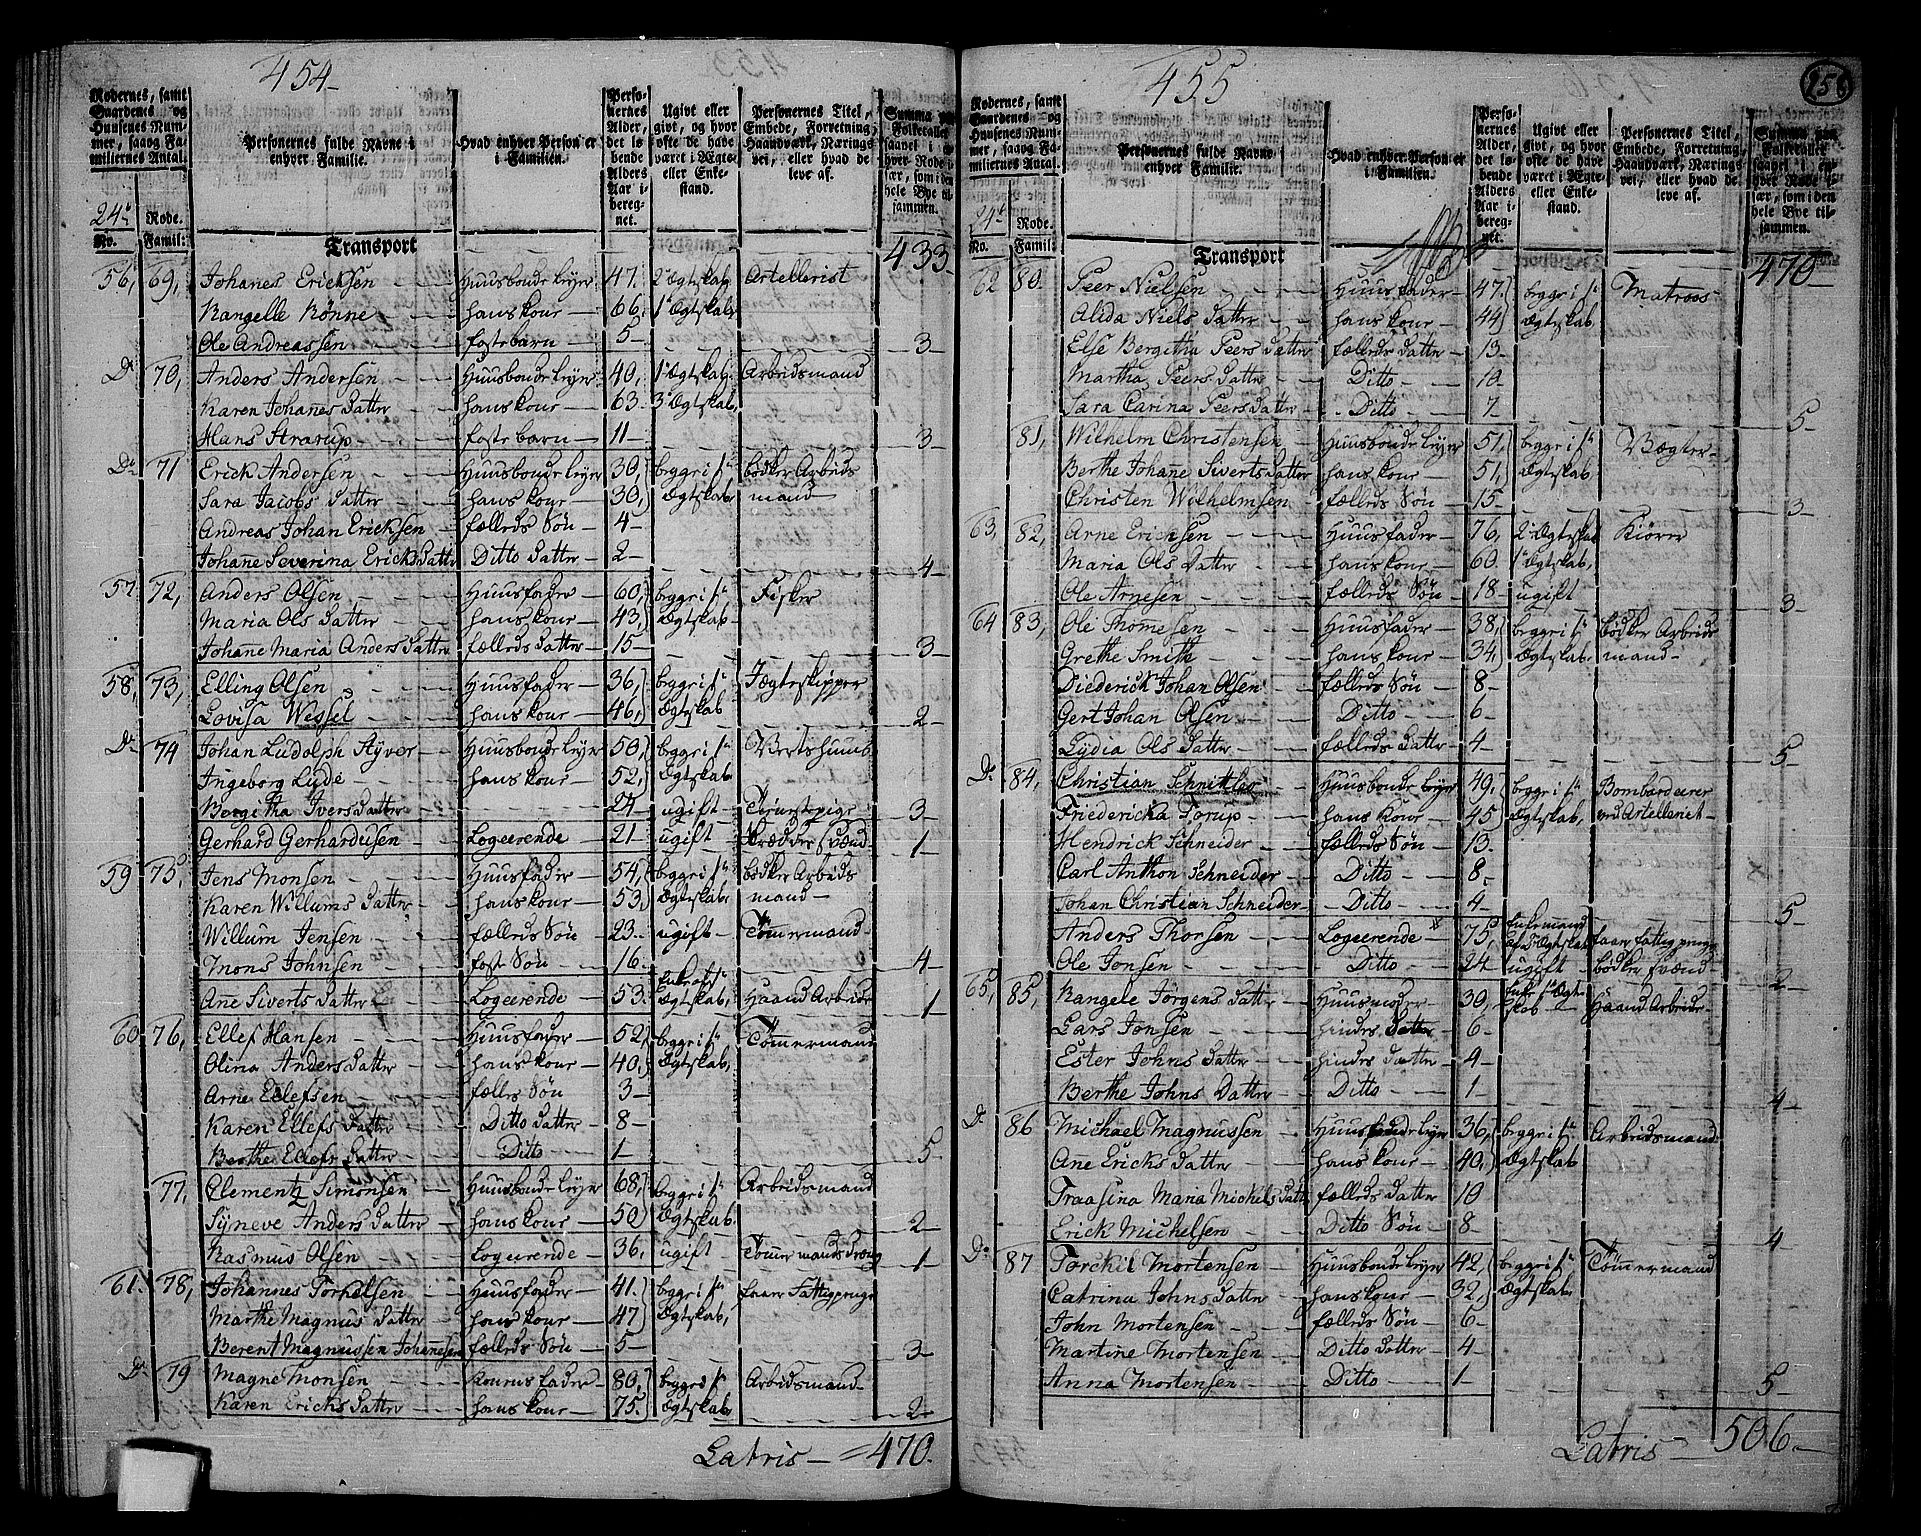 454
Rodernes, samt Gaardenes og Huusenes Nummer, saavg Familiernes Antal.
Personernes fulde Navne i enhver Familie.
Hvad enhver Person er i Familien.
Personernes Alder, det løbende Alders Aar iberegnet.
Ugivt eller givt, og hvor ofte de have været i Ægte- eller Enkestand.
Personernes Titel, Embede, Forretning, Haandværk, Næringsvei, eller hvad de leve af.
Summa paa Folketallet saavel i enhver Rode især, som i den hele Bye tilsammen.
24de Rode.
No. Famil:
Transport 433
56, 69, Johanes Ericksen Huusbonde leyer 47. 2det Ægtskab Artellerist
Rangelle Rönne hans kone 66. 1te Ægtskab
Ole Andreassen fostebarn 5 3
Do 70, Anders Andersen Huusbonde leyer 40, 1te Ægtskab Arbeidsmand
Karen Johanes Datter hans kone 63. 3die Ægtskab,
Hans Strarup foste barn 11 3
Do 71 Erick Andersen Huusbonde leyer 30, begge i 1te bödker Arbeids
Sara Jacobs Datter hans kone 30, Ægtskab mand
Andreas Johan Ericksen fælleds Sön 4
Johane Severina Ericks Datter Ditto Datter 2 4
57 72, Anders Olsen Huusfader 60, begge i 1te Fisker
Maria Ols Datter hans kone 43, Ægtskab
Johane Maria Anders Datter fælleds Datter 15 3
58, 73, Elling Olsen Huusfader 36, begge i 1te Jægteskipper
Lovisa Wessel hans kone 46, Ægtskab 2
Do 74 Johan Ludolph Styver Huusbonde leyer 50, begge i 1te Vertshuus
Ingeborg Lude hans kone 52, Ægtskab
Borgitha Ivers Datter 24 ugift Tienestepige 3
Gerhard Gerhardusen Logeerende 21 ugift Skrædder Svend 1
59 75, Jens Monsen Huusfader 54, begge i 1te bödker Arbeids
Karen Willums Datter hans kone 53, Ægtskab, mand
Willum Jensen fælleds Sön 23 ugift Tömmermand
Mons Johnsen foste Sön 16. 4
Ane Siverts Datter Logeerende 53. Enke af 1te Ægtskab, Haand Arbeide 1
60 76, Ellef Hansen Huusfader 52, begge i 1te Tömmermand
Olina Anders Datter hans kone 40, Ægtskab,
Arne Ellefsen fælleds Sön 3
Karen Ellefs Datter Ditto Datter 8
Berthe Ellefs Datter Ditto 1 5
77, Clementz Simonsen Huusbonde leyer 68, begge i 1te Arbeidsmand
Syneve Anders Datter hans kone 50 Ægtskab 2
Rasmus Olsen Logeerende 36, ugift Tömmermands dreng 1
61. 78, Johannes Torkelsen Huusfader 41. begge i 1te faaer Fattigpenge
Marthe Magnus Datter hans kone 47 Ægtskab,
Berent Magnussen Johanesen fælleds Sön 5 3
Do 79 Magne Monsen Konens fader 80, begge i 1te Arbeidsmand
Karen Ericks Datter hans kone 75. Ægtskab 2
Latris 470.
455
Rodernes, samt Gaardenes og Huusenes Nummer, saavg Familiernes Antal.
Personernes fulde Navne i enhver Familie.
Hvad enhver Person er i Familien.
Personernes Alder, det løbende Alders Aar iberegnet.
Ugivt eller givt, og hvor ofte de have været i Ægte- eller Enkestand.
Personernes Titel, Embede, Forretning, Haandværk, Næringsvei, eller hvad de leve af.
Summa paa Folketallet saavel i enhver Rode især, som i den hele Bye tilsammen.
24de Rode.
No. Famil:
Transport 470
62 80. Peer Nielsen Huusfader 47. begge i 1te Matroos
Alida Niels Datter hans kone 44 Ægtskab
Else Bergitha Peers Datter fælleds datter 13
Martha Peers Datter Ditto 10
Sara Carina Peers Datter Ditto 7 5
81, Wilhelm Christensen Huusbonde leyer 51, begge i 1te Vægter
Berthe Johane Siverts Datter hans kone 51, Ægtskab
Christen Wilhelmsen fælleds Sön 15 3
63, 82, Arne Ericksen Huusfader 76, 2det Ægtskab Kiörer
Maria Ols Datter hans kone 60. 1te Ægtskab,
Ole Arnesen fælleds Sön 18 ugift 3
64 83, Ole Thomesen Huusfader 38, begge i 1te bödker Arbeids
Grethe Smith hans kone 34, Ægtskab mand
Diederick Johan Olsen fælleds Sön 8
Gert Johan Olsen Ditto 6
Lydia Ols Datter fælleds datter 4 5
Do 84, Christian Schnitler Huusbonde leyer 49, begge i 1te Bombardeerer
Friedericka Torup hans kone 45 Ægtskab, ved Artelleriet
Hendrick Schneider fælleds Sön 13
Carl Anthon Schneider Ditto 8
Johan Christian Schneider Ditto 4 5
Anders Thorsen Logeerende 75, Enkemand af 1te Ægtskab faaer fattig penge
Ole Jonsen Ditto 24 ugift bödker Svend 2
65, 85, Rangele Jörgens Datter Huusmoder 30, Enke 1te Ægtskab Haand Arbeide
Lars Jonsen hindes 6
Ester Johns Datter hindes Datter 4
Berthe Johns Datter Ditto 1 4
Do 86 Michael Magnussen Huusbonde leyer 36, begge i 1te Arbeidsmand
Ane Ericks Datter hans kone 40, Ægtskab
Traasina Maria Michels Datter fælleds Datter 10
Erick Michelsen Ditto Sön 8 4
Do 87 Torckil Mortensen Huusbonde leyer 42, begge i 1te Tömmermand
Catrina Johns Datter hans kone 32, Ægtskab
John Mortensen fælleds Sön 6
Martine Mortensen Ditto Datter 4
Anna Mortensen Ditto 1 5
Latris 506